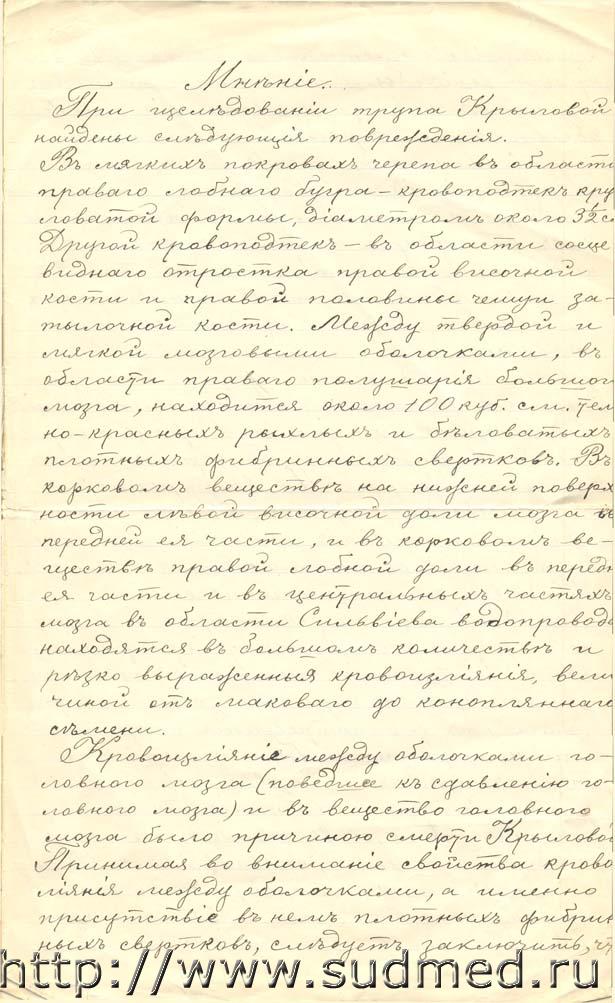 Мнѣніе.
При изслѣдованіи трупа Крыловой
найдены слѣдующія поврежденія.
Въ мягкихъ покровахъ черепа въ области
праваго лобнаго бугра – кровоподтекъ кру
ловатой формы, діаметромъ около 3½ с
Другой кровоподтекъ – въ области сосце
виднаго отростка правой височной
кости и правой половины чешуи за-
тылочной кости. Между твердой и
мягкой мозговыми оболочками, въ
области праваго полушарія большог
мозга, находится около 100 куб. см. тем
но-красныхъ рыхлыхъ и бѣловатыхъ
плотныхъ фибринныхъ свертковъ. Въ
корковомъ веществѣ на нижней поверх
ности лѣвой височной доли мозга въ
передней ея части, и въ корковомъ ве-
ществѣ правой лобной доли въ передн
ея части и въ центральныхъ частяхъ
мозга въ области Сильвіева водопровода
находятся въ большомъ количествѣ и
рѣзко выраженныя кровоизліянія, вели
чиной отъ маковаго до коноплянаго
сѣмени.
Кровоизліяніе между оболочками го-
ловного мозга (поведшее къ сдавленію го-
ловного мозга) и въ вещество головного
мозга было причиною смерти Крыловой
Принимая во вниманіе свойства крово
ліянія между оболочками, а именно
присутствіе въ немъ плотныхъ фибрин
ныхъ свертковъ, слѣдуетъ заключить, чт
http://www.sudmed.ru